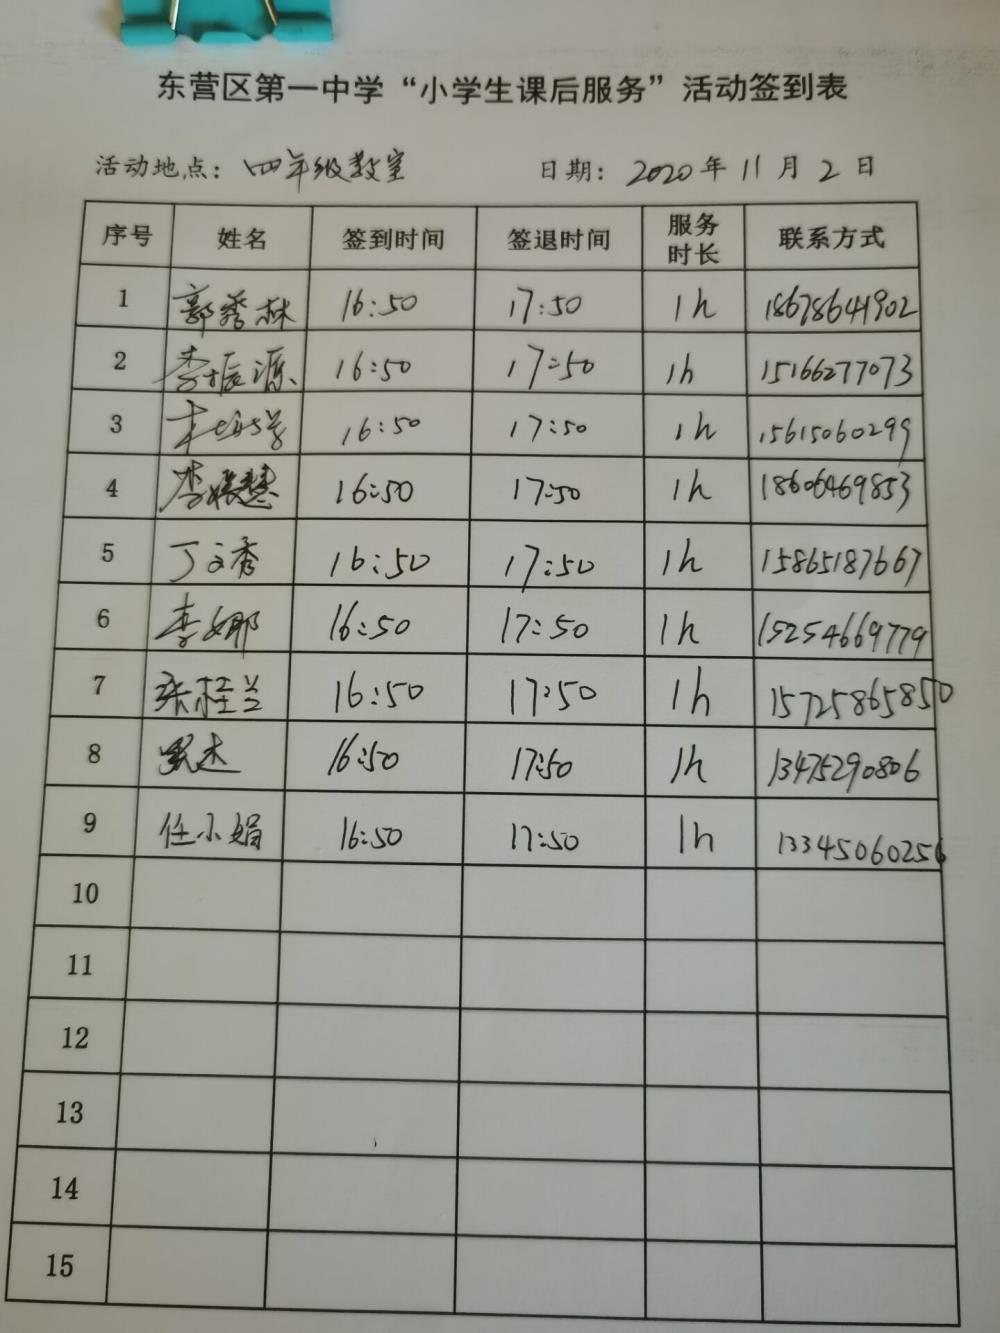 东营区第一中学“小学生课后服务”活动签到表
活动地点：四年级教室 日期：2020年11月2日
序号 姓名 签到时间 签退时间 服务时长 联系方式
1 郭秀林 16:50 17:50 1h 18678641902
2 李振源 16:50 17:50 1h 15166277073
3 16:50 17:50 1h 15615060299
4 李媛慧 16:50 17:50 1h 18606469853
5 丁文秀 16:50 17:50 1h 15865187667
6 李娜 16:50 17:50 1h 15254669779
7 张桂兰 16:50 17:50 1h 15725865850
8 16:50 17:50 1h 13475290806
9 任小娟 16:50 17:50 1h 13345060256
10
11
12
13
14
15